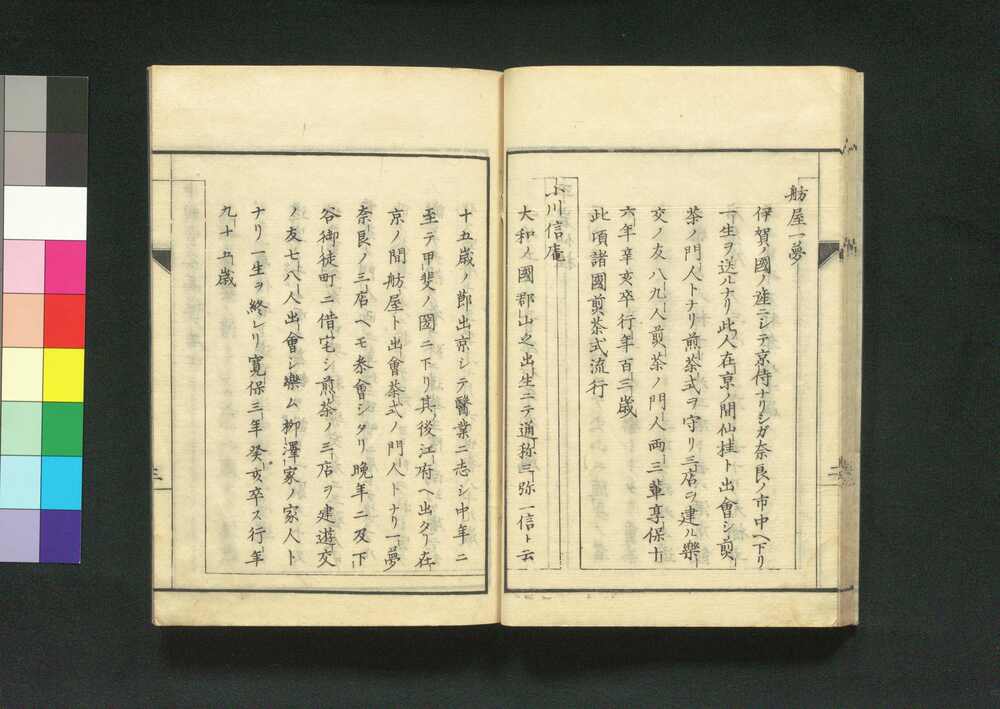 舫屋一夢
伊賀ノ國ノ産ニシテ京侍ナリシガ奈良ノ市中ヘ下リ
一生ヲ送ルナリ此人在京ノ間仙桂ト出會シ煎
茶ノ門人トナリ煎茶式ヲ守リ三店ヲ建ル樂
交ノ友八九人煎茶ノ門人両三輩享保十
六年辛亥卒行年百三歳
此項諸國煎茶式流行
小川信庵
大和ノ國郡山之出生ニテ通称三弥一信ト云
十五歳ノ節出京シテ醫業ニ志シ中年ニ
至テ甲斐ノ國ニ下リ其後江府ヘ出タリ在
京ノ間舫屋ト出會茶式ノ門人トナリ一夢
奈良ノ三店ヘモ参會シタリ晩年ニ及下
谷御徒町ニ借宅シ煎茶ノ三店ヲ建遊交
ノ友七八人出會シ樂ム柳澤家ノ家人ト
ナリ一生ヲ終レリ寛保三年癸亥卒ス行年
九十五歳
三